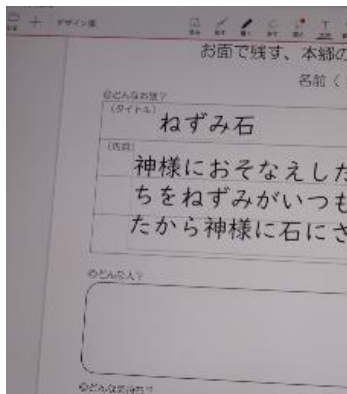 デザイン案
お面で残す、本郷の
名前く
①どんなお話?
(タイトル)
ねずみ石
(内容)
神様におそなえした
ちをねずみがいつも
たから神様に石にさ
②どんな人?